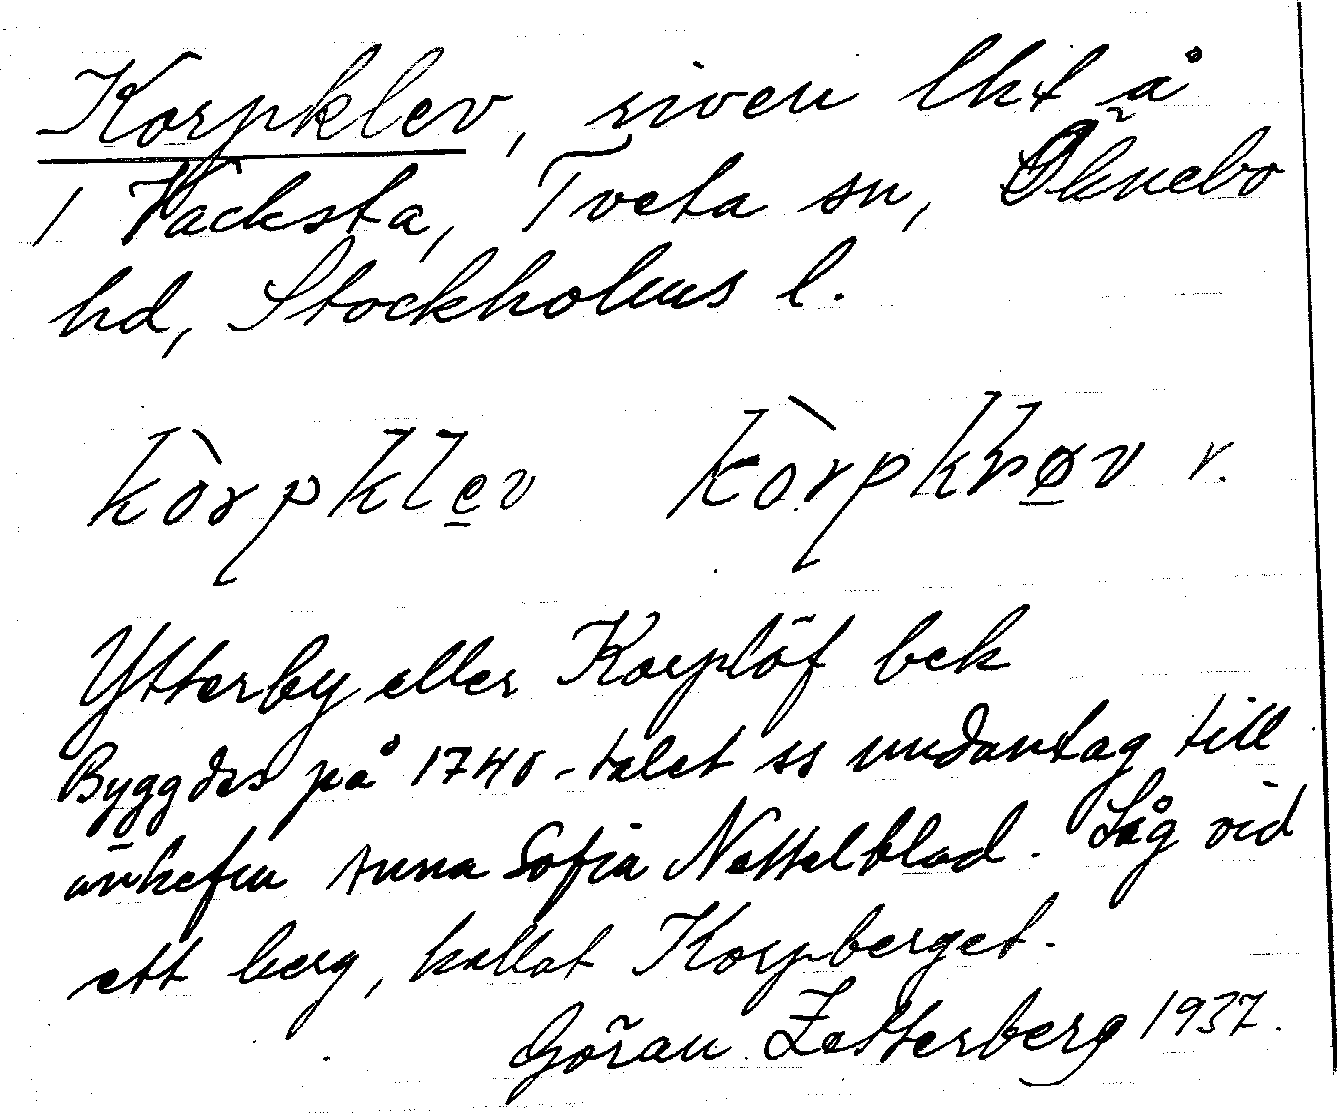 Korpklev, riven lht å
1 Vacksta, Tveta sn, Öknebo
hd, Stockholms l.
kòrpklev kòrpkløv r.
Ytterby eller Korplöf bek
Byggdes på 1740-talet ss undantag till
änkefru Anna Sofia Nettelblad. Låg vid
ett berg, kallat Korpberget.
Göran Zetterberg 1937.